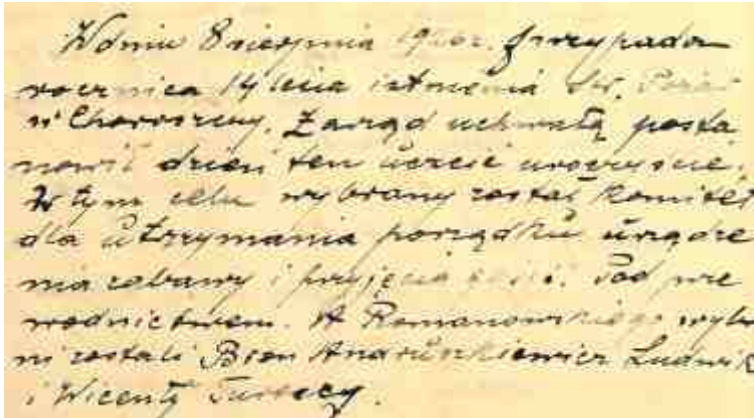 W dniu 8 sierpnia 1926r. przypada
rocznica 14 lecia istnienia Str. Pożar
w Choroszczy. Zarząd uchwałą posta
nowił dzień ten uczcić uroczyście.
W tym celu wybrany został Komitet
dla utrzymania porządku urządze
nia zabawy i przyjęcia gości. Pod prze
wodnictwem. A Romanowskiego wybra
ni zostali Bron Andruszkiewicz Ludwik
i Wicenty Tureccy.